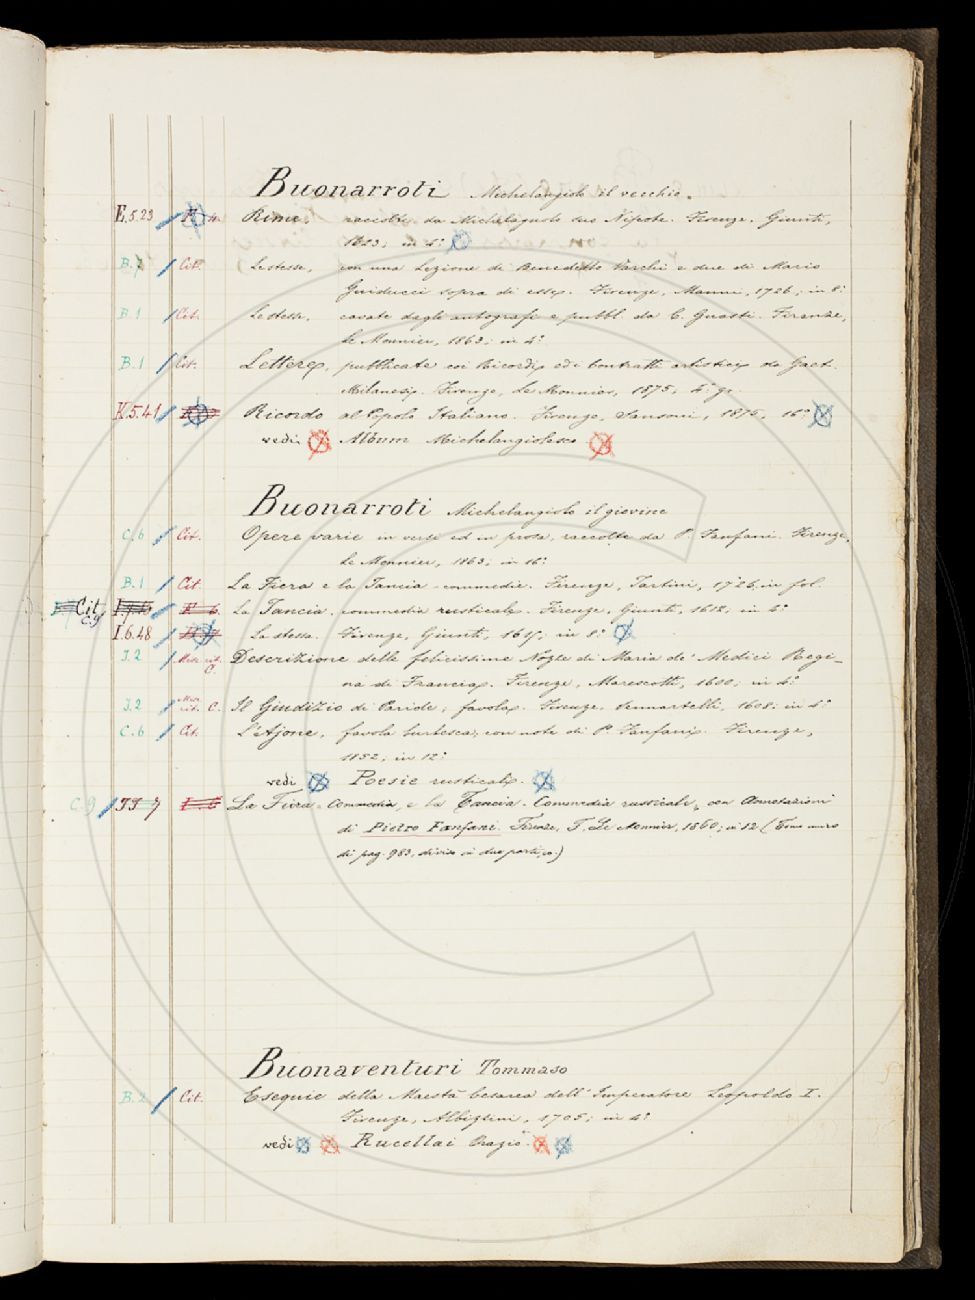 Buonarroti Michelangiolo il vecchio.
E.5.23 Rime. raccolte da Michelagnolo suo Nipote. Firenze, Giunti,
1623; in 4°
B.7 Cit. Le stesse, con una Lezione di Benedetto Varchi e due di Mario
Guiducci sopra di esse. Firenze, Manni, 1726; in 8°
B.1 Cit. Le stesse, cavate dagli autografi e pubbl. da C. Guasti. Firenze,
Le Monnier, 1863; in 4°
B.1 Cit. Lettere, pubblicate coi Ricordi ed i Contratti artistici da Gaet.
Milanesi. Firenze, Le Monnier, 1875, 4° gr.
K.5.41 Ricordo al Popolo Italiano. Firenze, Sansoni, 1875, 16°
vedi Album Michelangiolesco
Buonarroti Michelangiolo il giovine
C.6 Cit. Opere varie in versi ed in prosa, raccolte da P. Fanfani. Firenze,
Le Monnier, 1863; in 16°
B.1 Cit. La Fiera e la Tancia commedie. Firenze, Tartini, 1726, in fol.
Cit. C.9 La Tancia, commedia rusticale. Firenze, Giunti, 1612; in 4°
I.6.48 La stessa. Firenze, Giunti, in 8°
J.2 Misc. cit. C. Descrizione delle felicissime Nozze di Maria de' Medici Regi-
na di Francia. Firenze, Marescotti, 1600; in 4°
J.2 Misc. cit. C. Il Giudizio di Paride, favola. Firenze, Sermartelli, 1608; in 4°
C.6 Cit. L'Ajone, favola burlesca, con note di P. Fanfani. Firenze,
1852, in 12°
vedi Poesie rusticali.
C.9 La Fiera. Commedia, e la Tancia. Commedia rusticale, con Annotazioni
di Pietro Fanfani. Firenze, F. Le Monnier, 1860; in 12 (Tomo unico
di pag. 983, diviso in due parti)
Buonaventuri Tommaso
B.2 Cit. Esequie della Maestà Cesarea dell'Imperatore Leopoldo I.
Firenze, Albizzini, 1705; in 4°
vedi Rucellai Orazio.